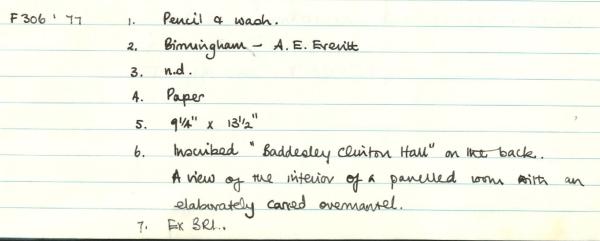 F306'77 1. Pencil & wash.
2. Birmingham - A. E. Everitt
3. n.d.
4. Paper
5. 9¼" x 13½"
6. Inscribed "Baddesley Clinton Hall" on the back.
A view of the interior of a panelled room with an
elaborately carved overmantel.
7. Ex 3R1..